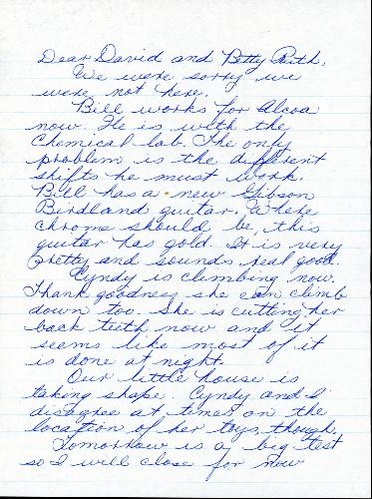 Dear David and Betty Ruth,
We were sorry we
were not here.
Bill works for Alcoa
now. He is with the
Chemical lab. The only
problem is the different
shifts he must work.
Bill has a new Gibson
Birdland guitar. Where
chrome should be, this
guitar has gold. It is very
pretty and sounds real good.
Cyndy is climbing now.
Thank goodness she can climb
down too. She is cutting her
back teeth now and it
seems like most of it
is done at night.
Our little house is
taking shape. Cyndy and I
disagree at times on the
location of her toys, though.
Tomorrow is a big test
so I will close for now